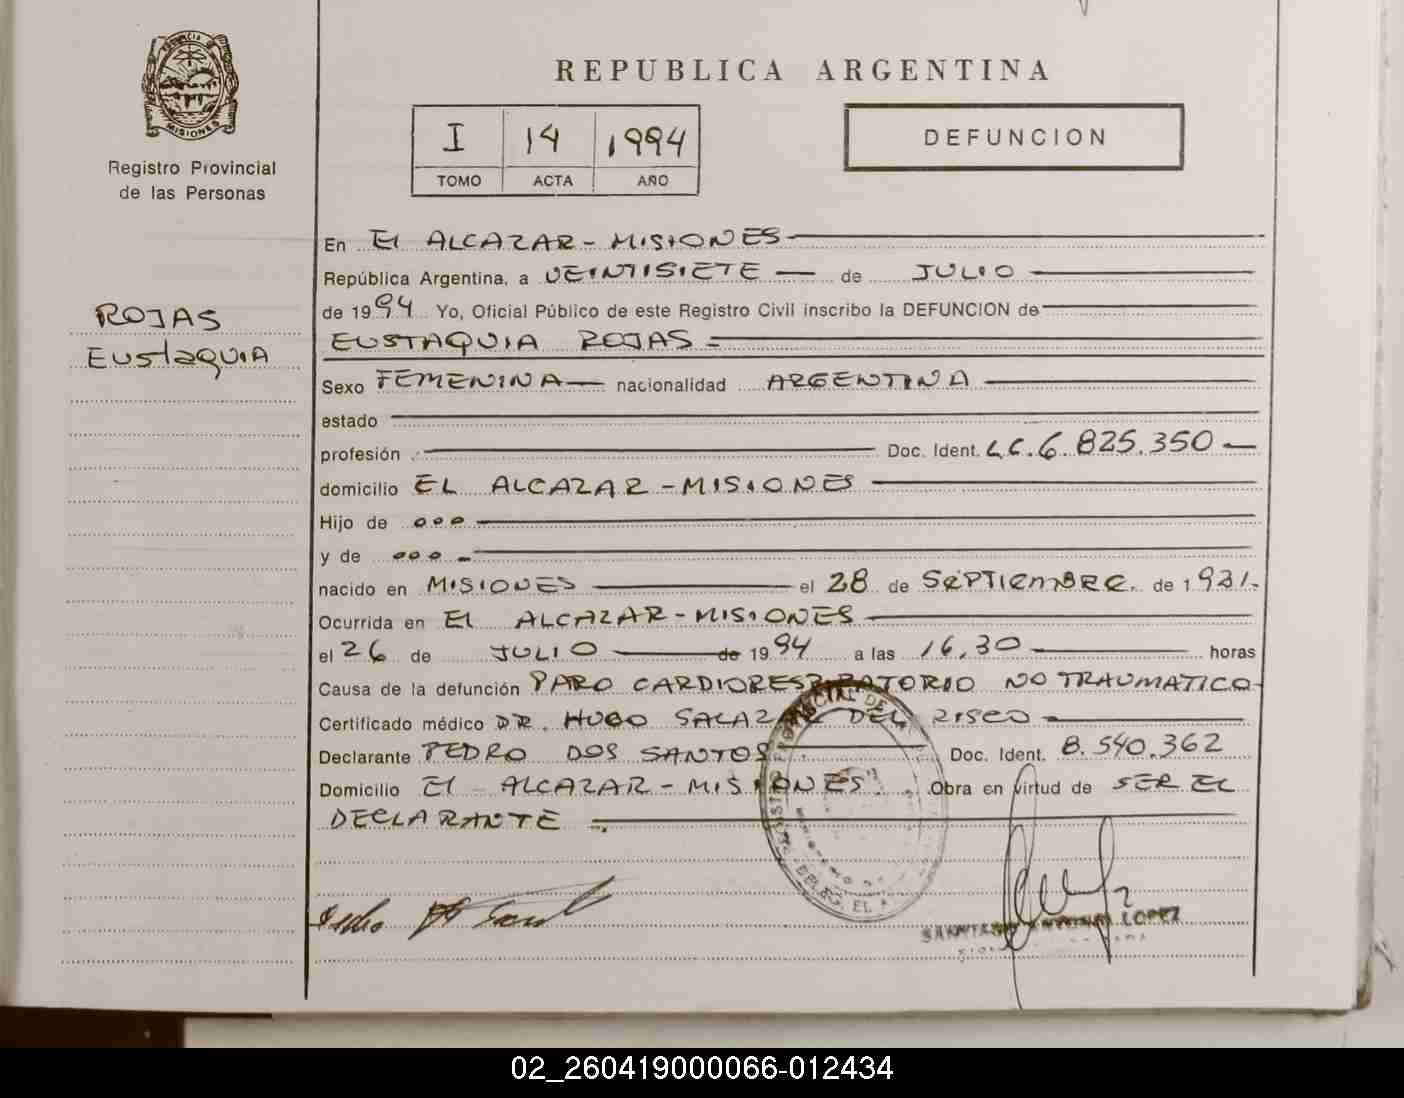 PROVINCIA DE
MISIONES
Registro Provincial
de las Personas
ROJAS
Eustaquia
REPUBLICA ARGENTINA
I 14 1994
TOMO ACTA AÑO
DEFUNCION
En El ALCAZAR - MISIONES
República Argentina, a VEINTISIETE de JULIO
de 1994 Yo, Oficial Público de este Registro Civil inscribo la DEFUNCION de
EUSTAQUIA ROJAS =
Sexo FEMENINA nacionalidad ARGENTINA
estado
profesión Doc. Ident. L.C. 6.825.350
domicilio EL ALCAZAR - MISIONES
Hijo de ooo
y de ooo
nacido en MISIONES el 28 de SEPTIEMBRE de 1931.
Ocurrida en El ALCAZAR - MISIONES
el 26 de JULIO de 1994 a las 16,30 horas
Causa de la defunción PARO CARDIORESPIRATORIO NO TRAUMATICO
Certificado médico DR. HUGO SALAZAR DEL RISCO
Declarante PEDRO DOS SANTOS Doc. Ident. 8.540.362
Domicilio El ALCAZAR - MISIONES. Obra en virtud de SER EL
DECLARANTE
Pedro
LOPEZ
02_260419000066-012434